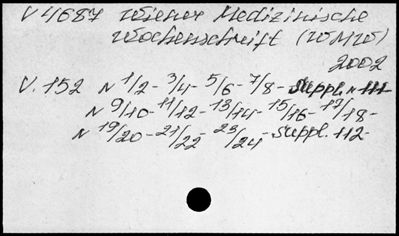 V 4687 Wiener Medizinische
Wochenschrift (WMW)
2002
V. 152 N 1/2- 3/4- 5/6- 7/8- Suppl. N 111-
N 9/10- 11/12- 13/14- 15/16- 17/18-
N 19/20- 21/22- 23/24- Suppl. 112-